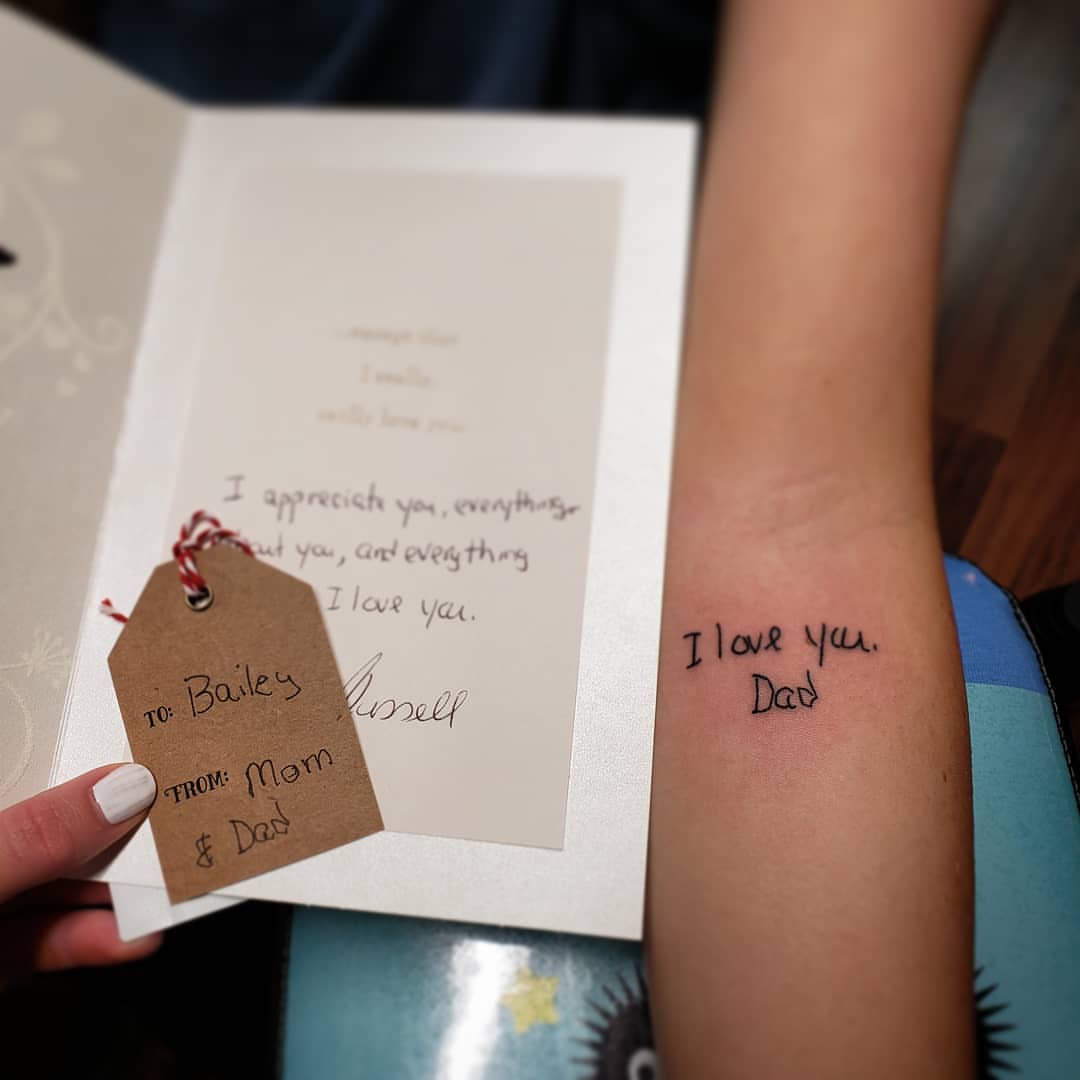 I really,
really love you.
I appreciate you, everything
you, and everything
I love you.
Russell
TO: Bailey
FROM: Mom
& Dad
I love you.
Dad